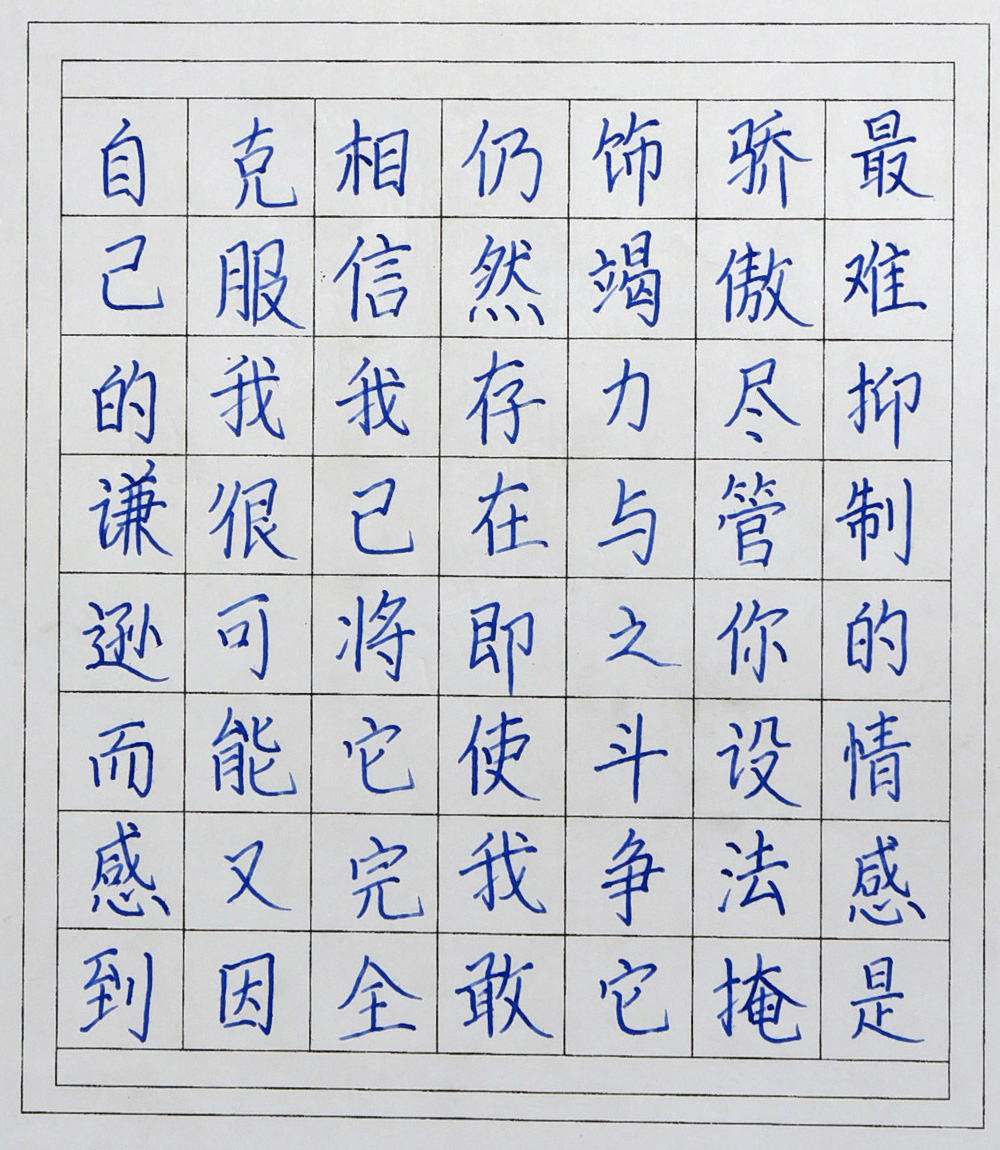 最难抑制的情感是
骄傲尽管你设法掩
饰竭力与之斗争它
仍然存在即使我敢
相信我己将它完全
克服我很可能又因
自己的谦逊而感到